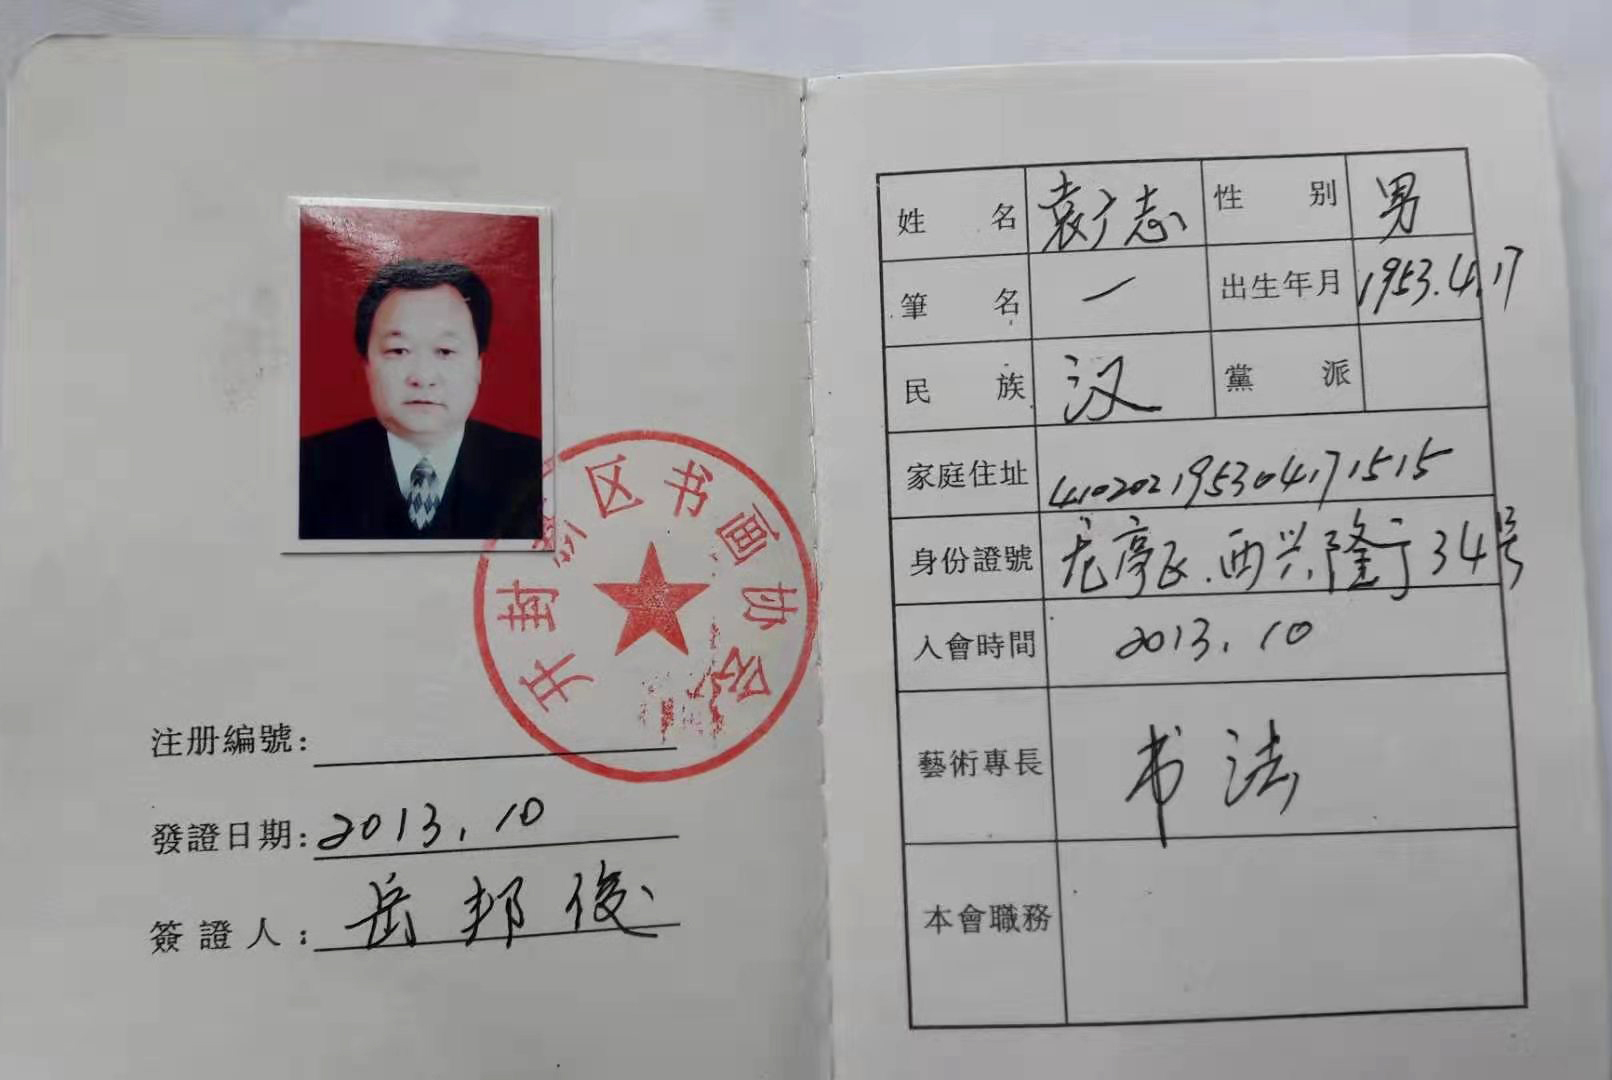 开封新区书画协会
注册編號:
發證日期: 2013.10
簽證人: 岳邦俊
姓名 袁广志 性别 男
筆名 一 出生年月 1953.4.17
民族 汉 黨派
家庭住址 410202195304171515
身份證號 龙亭区.西兴隆亍34号
入會時間 2013.10
藝術專長 书法
本會職務